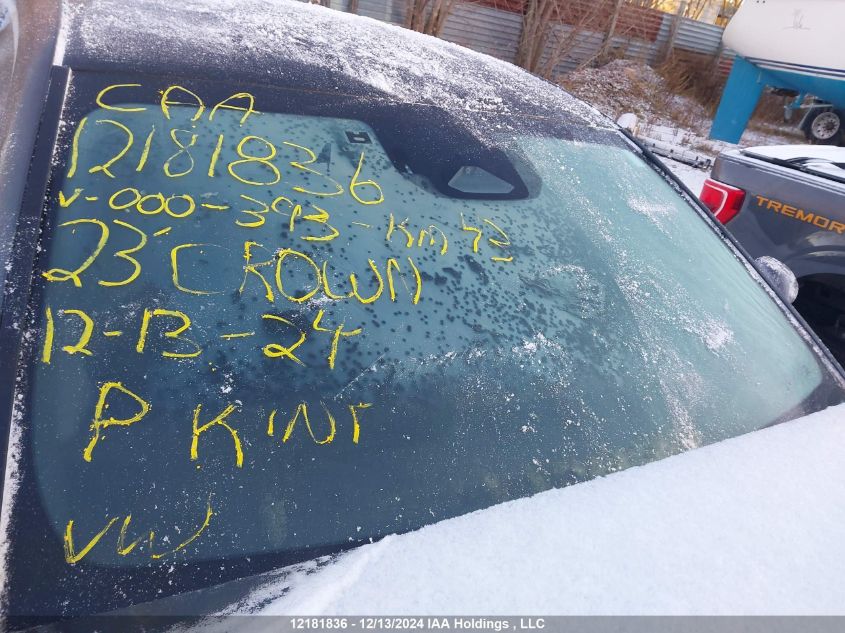 CAA
12181836
V-000-393-Km 42
23' CROWN
12-13-24
P KINT
VW
TREMOR
12181836 - 12/13/2024 IAA Holdings , LLC